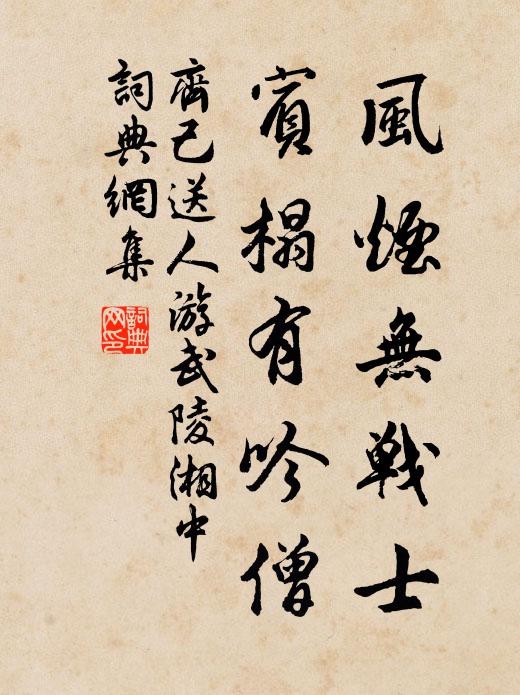 風煙無戰士
賓榻有吟僧
齊己送人游武陵湘中
詞典網集
詞典网印